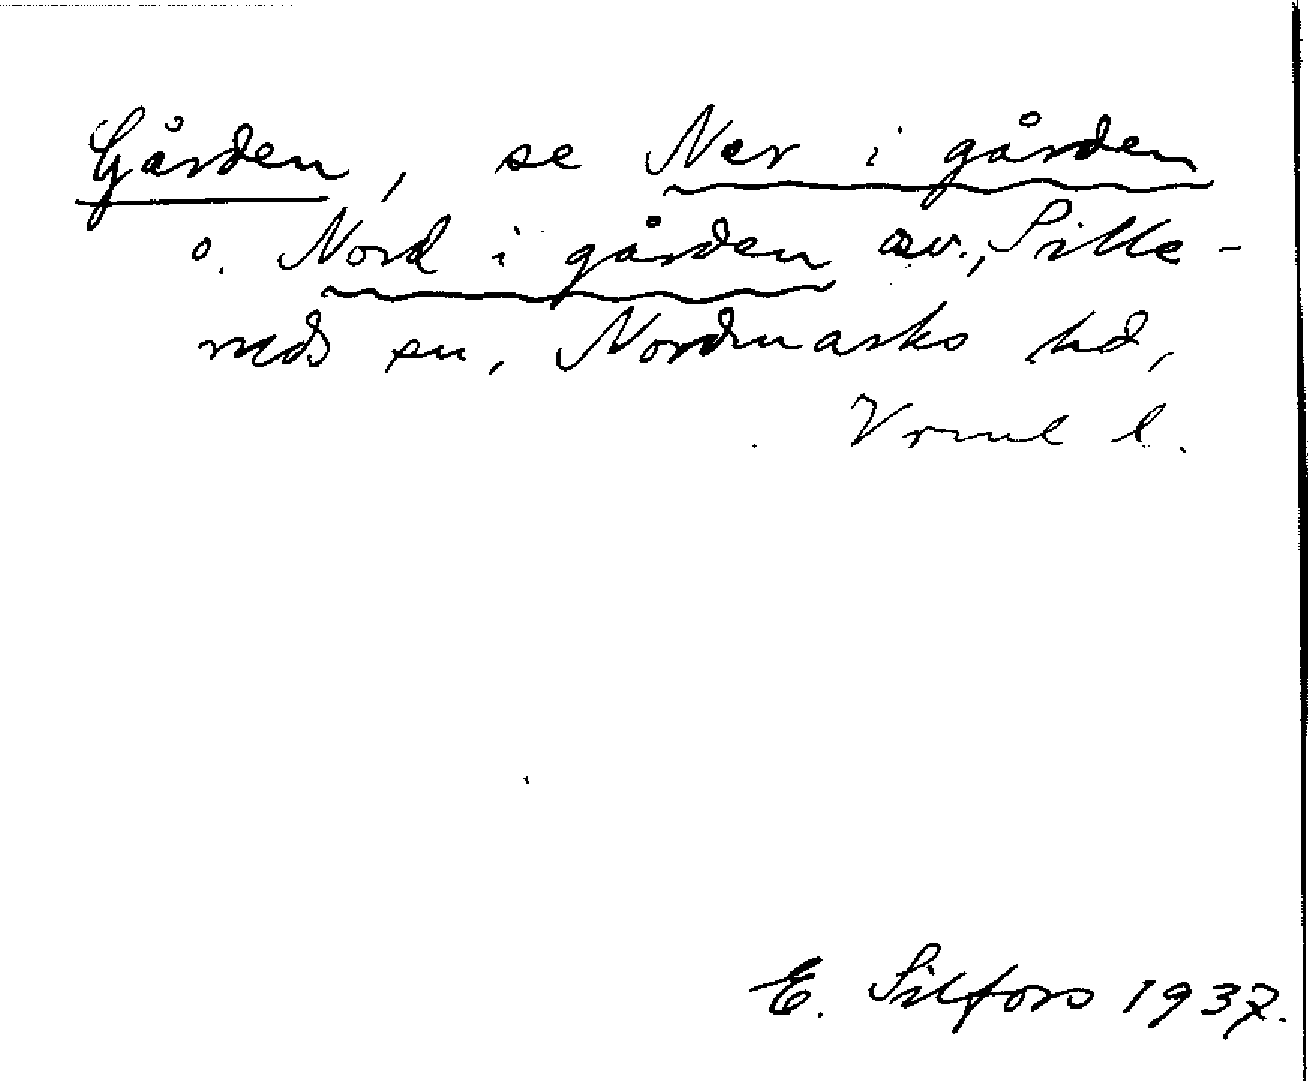 Gården, se Ner i gården
o. Nord i gården av., Sille-
ruds sn, Nordmarks hd,
Vrml l.
E. Silfors 1937.